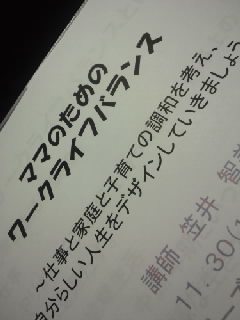 ママのための
ワークライフバランス
～仕事と家庭と子育ての調和を考え、
自分らしい人生をデザインしていきましょう
講師 笠井 智
11.30(